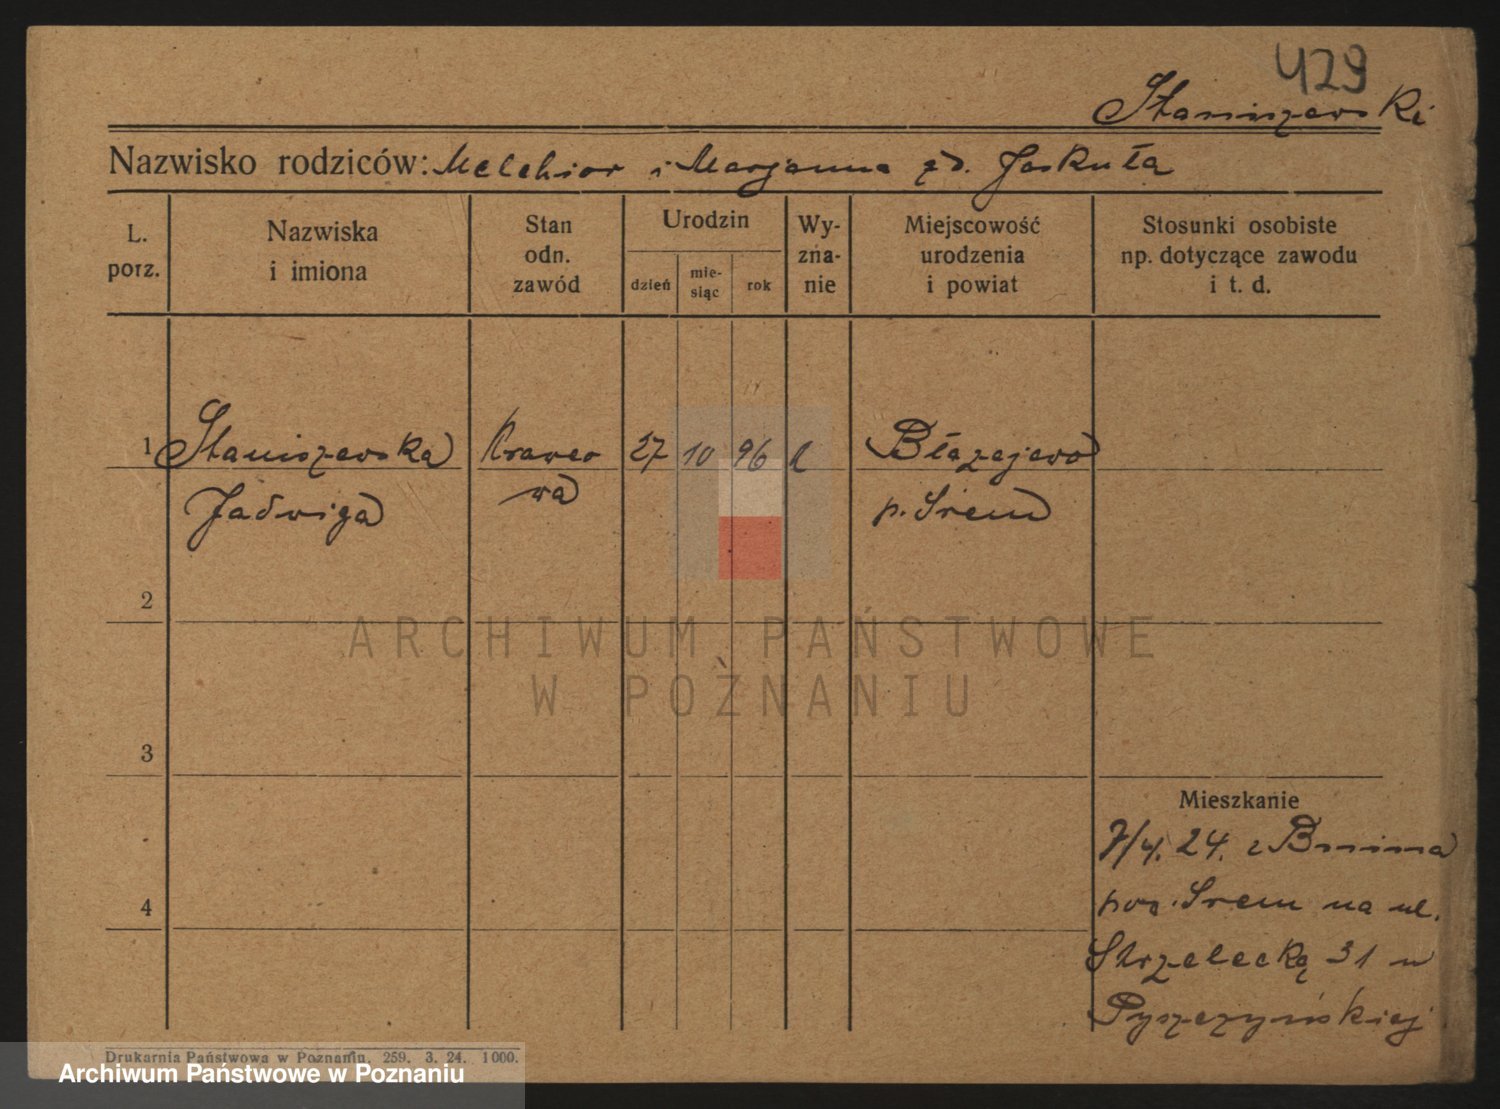 429
Staniszewski
Nazwisko rodziców: Melchior i Marjanna zd. Jaskuła
L. porz.
Nazwiska i imiona
Stan odn. zawód
Urodzin
dzień
mie- siąc
rok
Wy- zna- nie
Miejscowość urodzenia i powiat
Stosunki osobiste np. dotyczące zawodu i t. d.
1 Staniszewska Krawco 27 10 96 k Błażejewo
Jadwiga wa p. Śrem
2
ARCHIWUM PAŃSTWOWE
W POZNANIU
3
Mieszkanie
7/4. 24. z Bnina
4
pow. Śrem na ul.
Strzelecką 31 u
Pyszczyńskiej
Drukarnia Państwowa w Poznaniu. 259. 3. 24. 1000.
Archiwum Państwowe w Poznaniu